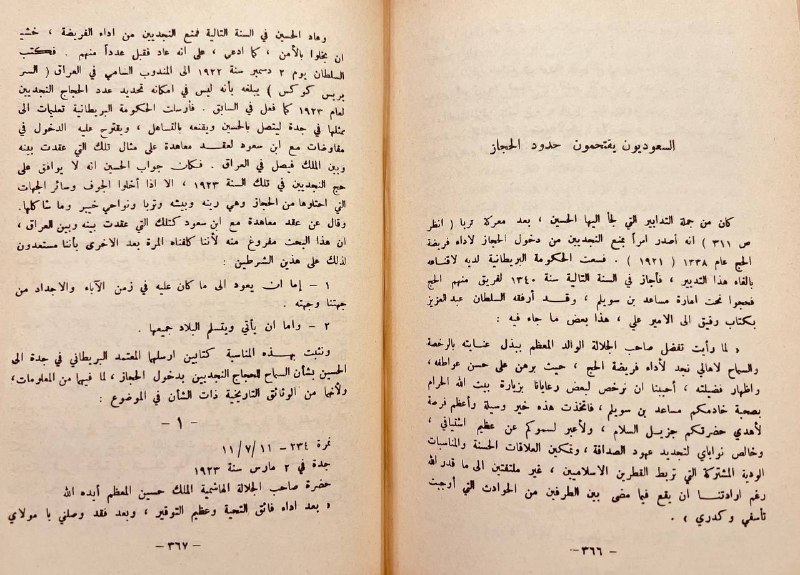 السعوديون يقتحمون حدود الحجاز
كان من جملة التدابير التي لجأ اليها الحسين ، بعد معركة تربا ( انظر
ص ٣١١ ) انه أصدر امراً بمنع النجديين من دخول الحجاز لاداء فريضة
الحج عام ١٣٣٨ ( ١٩٢١ ) . فسعت الحكومة البريطانية لديه لاقناعه
بالغاء هذا التدبير ، فأجاز في السنة التالية سنة ١٣٤٠ لفريق منهم الحج
فحجوا تحت امارة مساعد بن سويلم ، وقد أرفقه السلطان عبدالعزيز
بكتاب رقيق الى الامير علي ، هذا بعض ما جاء فيه :
« لما رأيت تفضل صاحب الجلالة الوالد المعظم ببذل عنايته بالرخصة
والسماح لاهالي نجد لأداء فريضة الحج ، حيث برهن على حسن عواطفه ،
واظهار فضيلته ، أحببنا ان نرخص لبعض رعايانا بزيارة بيت الله الحرام
بصحبة خادمكم مساعد بن سويلم ، فاتخذت هذه خير وسيلة وأعظم فرصة
لأهدي حضرتكم جزيل السلام ، ولأعبر لسموكم عن عظيم اشتياقي ،
وخالص نواياي لتجديد عهود الصداقة ، وتمكين العلاقات الحسنة والمناسبات
الودية المشتركة التي تربط القطرين الاسلاميين ، غير ملتفتين الى ما قدر الله
رغم ارادتنا ان يقع فيما مضى بين الطرفين من الحوادث التي أوجبت
تأسفي وكدري » .
– ٣٦٦ –
وعاد الحسين في السنة التالية فمنع النجديين من اداء الفريضة ، خشية
ان يخلوا بالأمن ، كما ادعى ، على انه عاد فقبل عدداً منهم . فكتب
السلطان يوم ٢ دسمبر سنة ١٩٢٢ الى المندوب السامي في العراق ( السر
برسي كوكس ) يبلغه بأنه ليس في امكانه تحديد عدد الحجاج النجديين
لعام ١٩٢٣ كما فعل في السابق . فأرسلت الحكومة البريطانية تعليمات الى
ممثلها في جدة ليتصل بالحسين ويقنعه بالتساهل ، ويقترح عليه الدخول في
مفاوضات مع ابن سعود لعقد معاهدة على مثال تلك التي عقدت بينه
وبين الملك فيصل في العراق . فكان جواب الحسين انه لا يوافق على
حج النجديين في تلك السنة ١٩٢٣ ، الا اذا أخلوا الجرف وسائر الجهات
التي احتلوها من الحجاز وهي رنيه وبيشه وتربا ونواحي خيبر وما شاكلها.
وقال عن عقد معاهدة مع ابن سعود كتلك التي عقدت بينه وبين العراق ،
ان هذا البحث مفروغ منه لأننا كلفناه المرة بعد الاخرى بأننا مستعدون
لذلك على هذين الشرطين :
١ – إما ان يعود الى ما كان عليه في زمن الآباء والاجداد من
جهتنا وجهته .
٢ – واما ان يأتي ويتسلم البلاد جميعها .
ونثبت بهذه المناسبة كتابين ارسلها المعتمد البريطاني في جدة الى
الحسين بشأن السماح للحجاج النجديين بدخول الحجاز ، لما فيهما من المعلومات،
ولأنهما من الوثائق التاريخية ذات الشأن في الموضوع :
– ١ –
نمرة ٢٣٤– ١١/٧/١١
جدة في ٢ مارس سنة ١٩٢٣
حضرة صاحب الجلالة الهاشمية الملك حسين المعظم أيده الله
« بعد اداء فائق التحية وعظيم التوقير ، وبعد فقد وصلني يا مولاي
– ٣٦٧ –